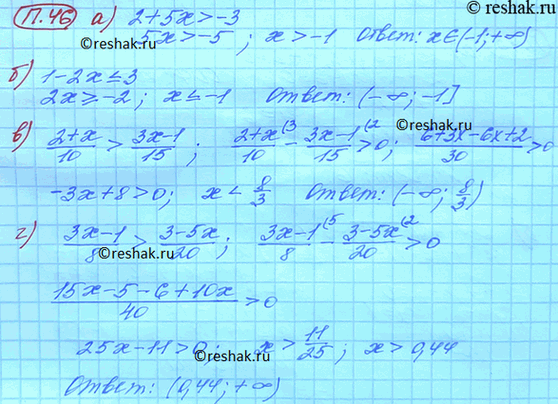 © reshak.ru
П.46 а) 2+5x>-3
5x>-5; x>-1 Ответ: x∈(-1;+∞)
©reshak.ru
б) 1-2x≤3
2x≥-2; x≤-1 Ответ: (-∞; -1]
в) (2+x)/10 > (3x-1)/15; (2+x)/10 (3 - (3x-1)/15 (2 >0; (6+3x-6x+2)/30 >0
-3x+8>0; x<8/3 Ответ: (-∞; 8/3)
г) (3x-1)/8 > (3-5x)/20; (3x-1)/8 (5 - (3-5x)/20 (2 >0
©reshak.ru
(15x-5-6+10x)/40 >0
25x-11>0; x>11/25; x>0,44
©reshak.ru
Ответ: (0,44; +∞)